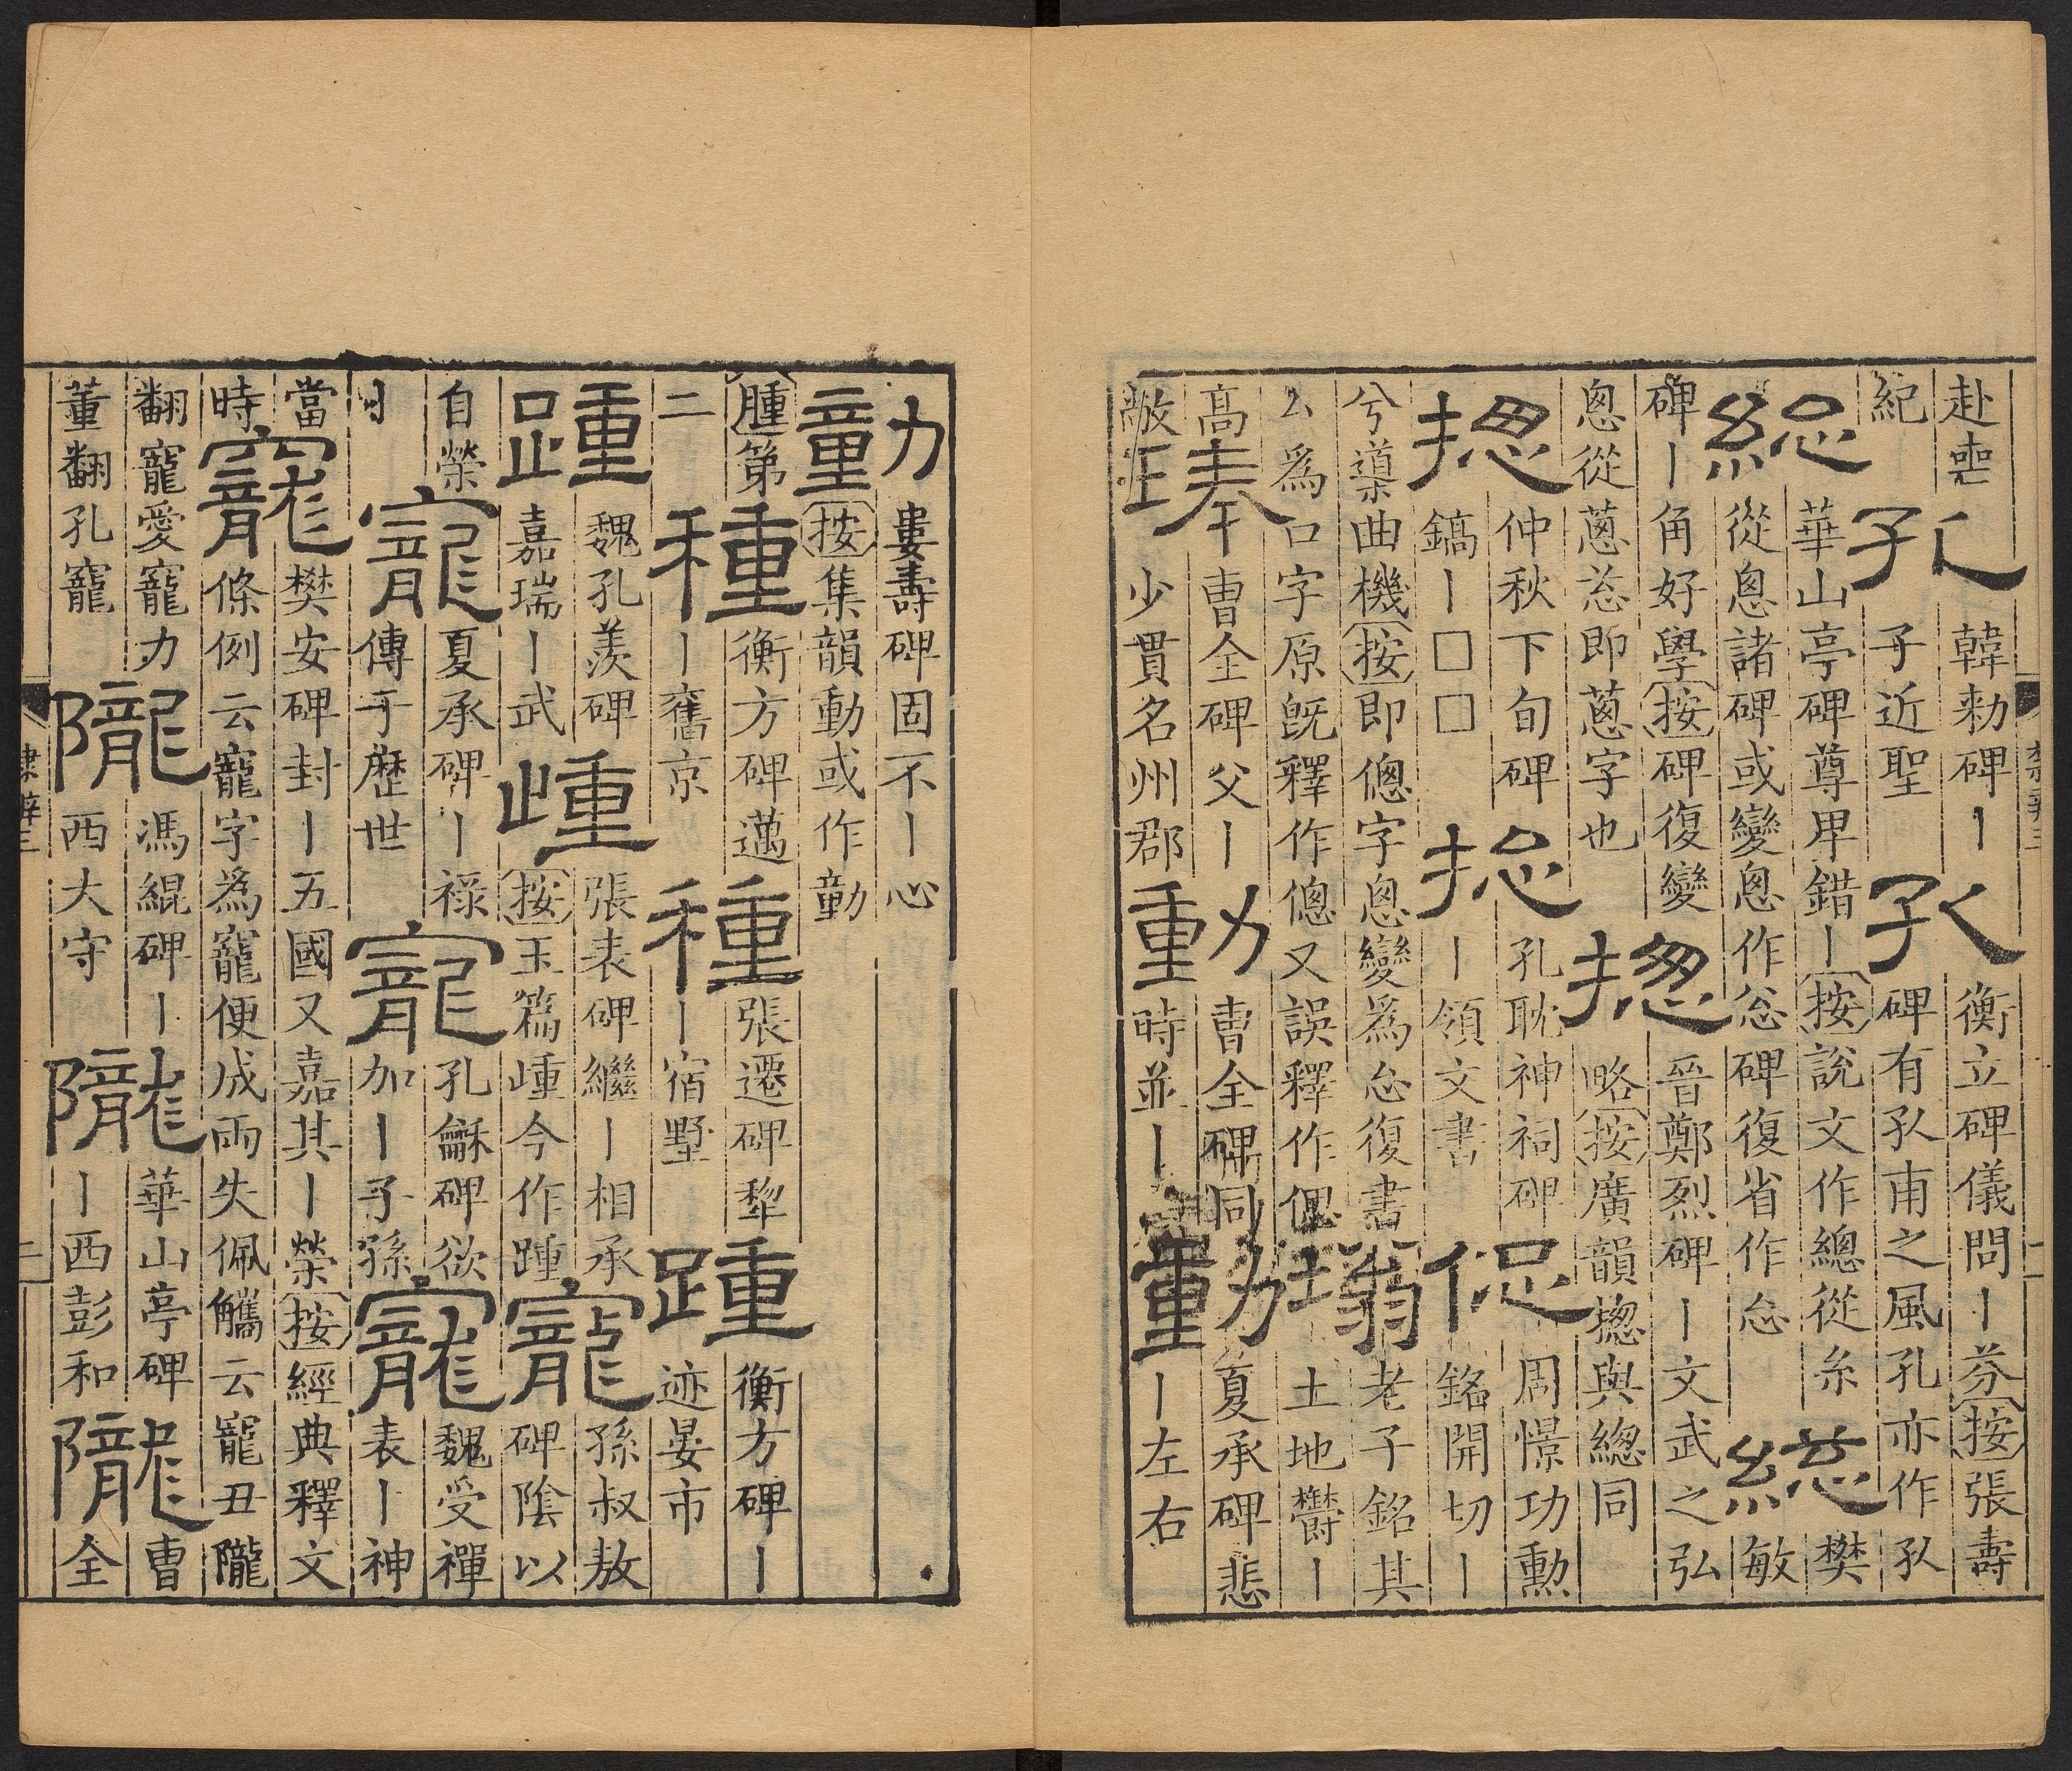 赴喪
紀
孔
韓勑碑丨
子近聖
孔
衡立碑儀問丨芬按張壽
碑有孔甫之風孔亦作孔
緫
華山亭碑尊卑錯丨按說文作總從糸
從悤諸碑或變悤作忩碑復省作㤀
總
樊
敏
碑丨角好學按碑復變
悤從蔥䓗即蔥字也
揔
晉鄭烈碑丨文武之弘
略按廣韻揔與總同
揔
仲秋下旬碑
鎬丨□□
揔
孔耽神祠碑
丨領文書
偬
周憬功勲
銘開切丨
兮導曲機按即傯字悤變為㤀復書
厶為口字原既釋作傯又誤釋作偲
塕
老子銘其
土地鬱丨
高
敞
琫
曹全碑父丨
少貫名州郡
動
曹全碑同
時並丨
動
夏承碑悲
丨左右
勭
婁壽碑固不丨心
按集韻動或作勭
腫第
二
種
衡方碑邁
丨舊京
種
張遷碑犂
丨宿墅
踵
衡方碑丨
迹晏市
踵
魏孔羨碑
嘉瑞丨武
歱
張表碑繼丨相承
按玉篇歱今作踵
寵
孫叔敖
碑陰以
自榮
寵
夏承碑丨祿
傳于歷世
寵
孔龢碑欲
加丨子孫
寵
魏受禪
表丨神
當
時
竉
樊安碑封丨五國又嘉其丨榮按經典釋文
條例云寵字為竉便成兩失佩觿云寵丑隴
翻寵愛竉力
董翻孔竉
隴
馮緄碑丨
西大守
隴
華山亭碑
丨西彭和
隴
曹
全
隸辨三
二